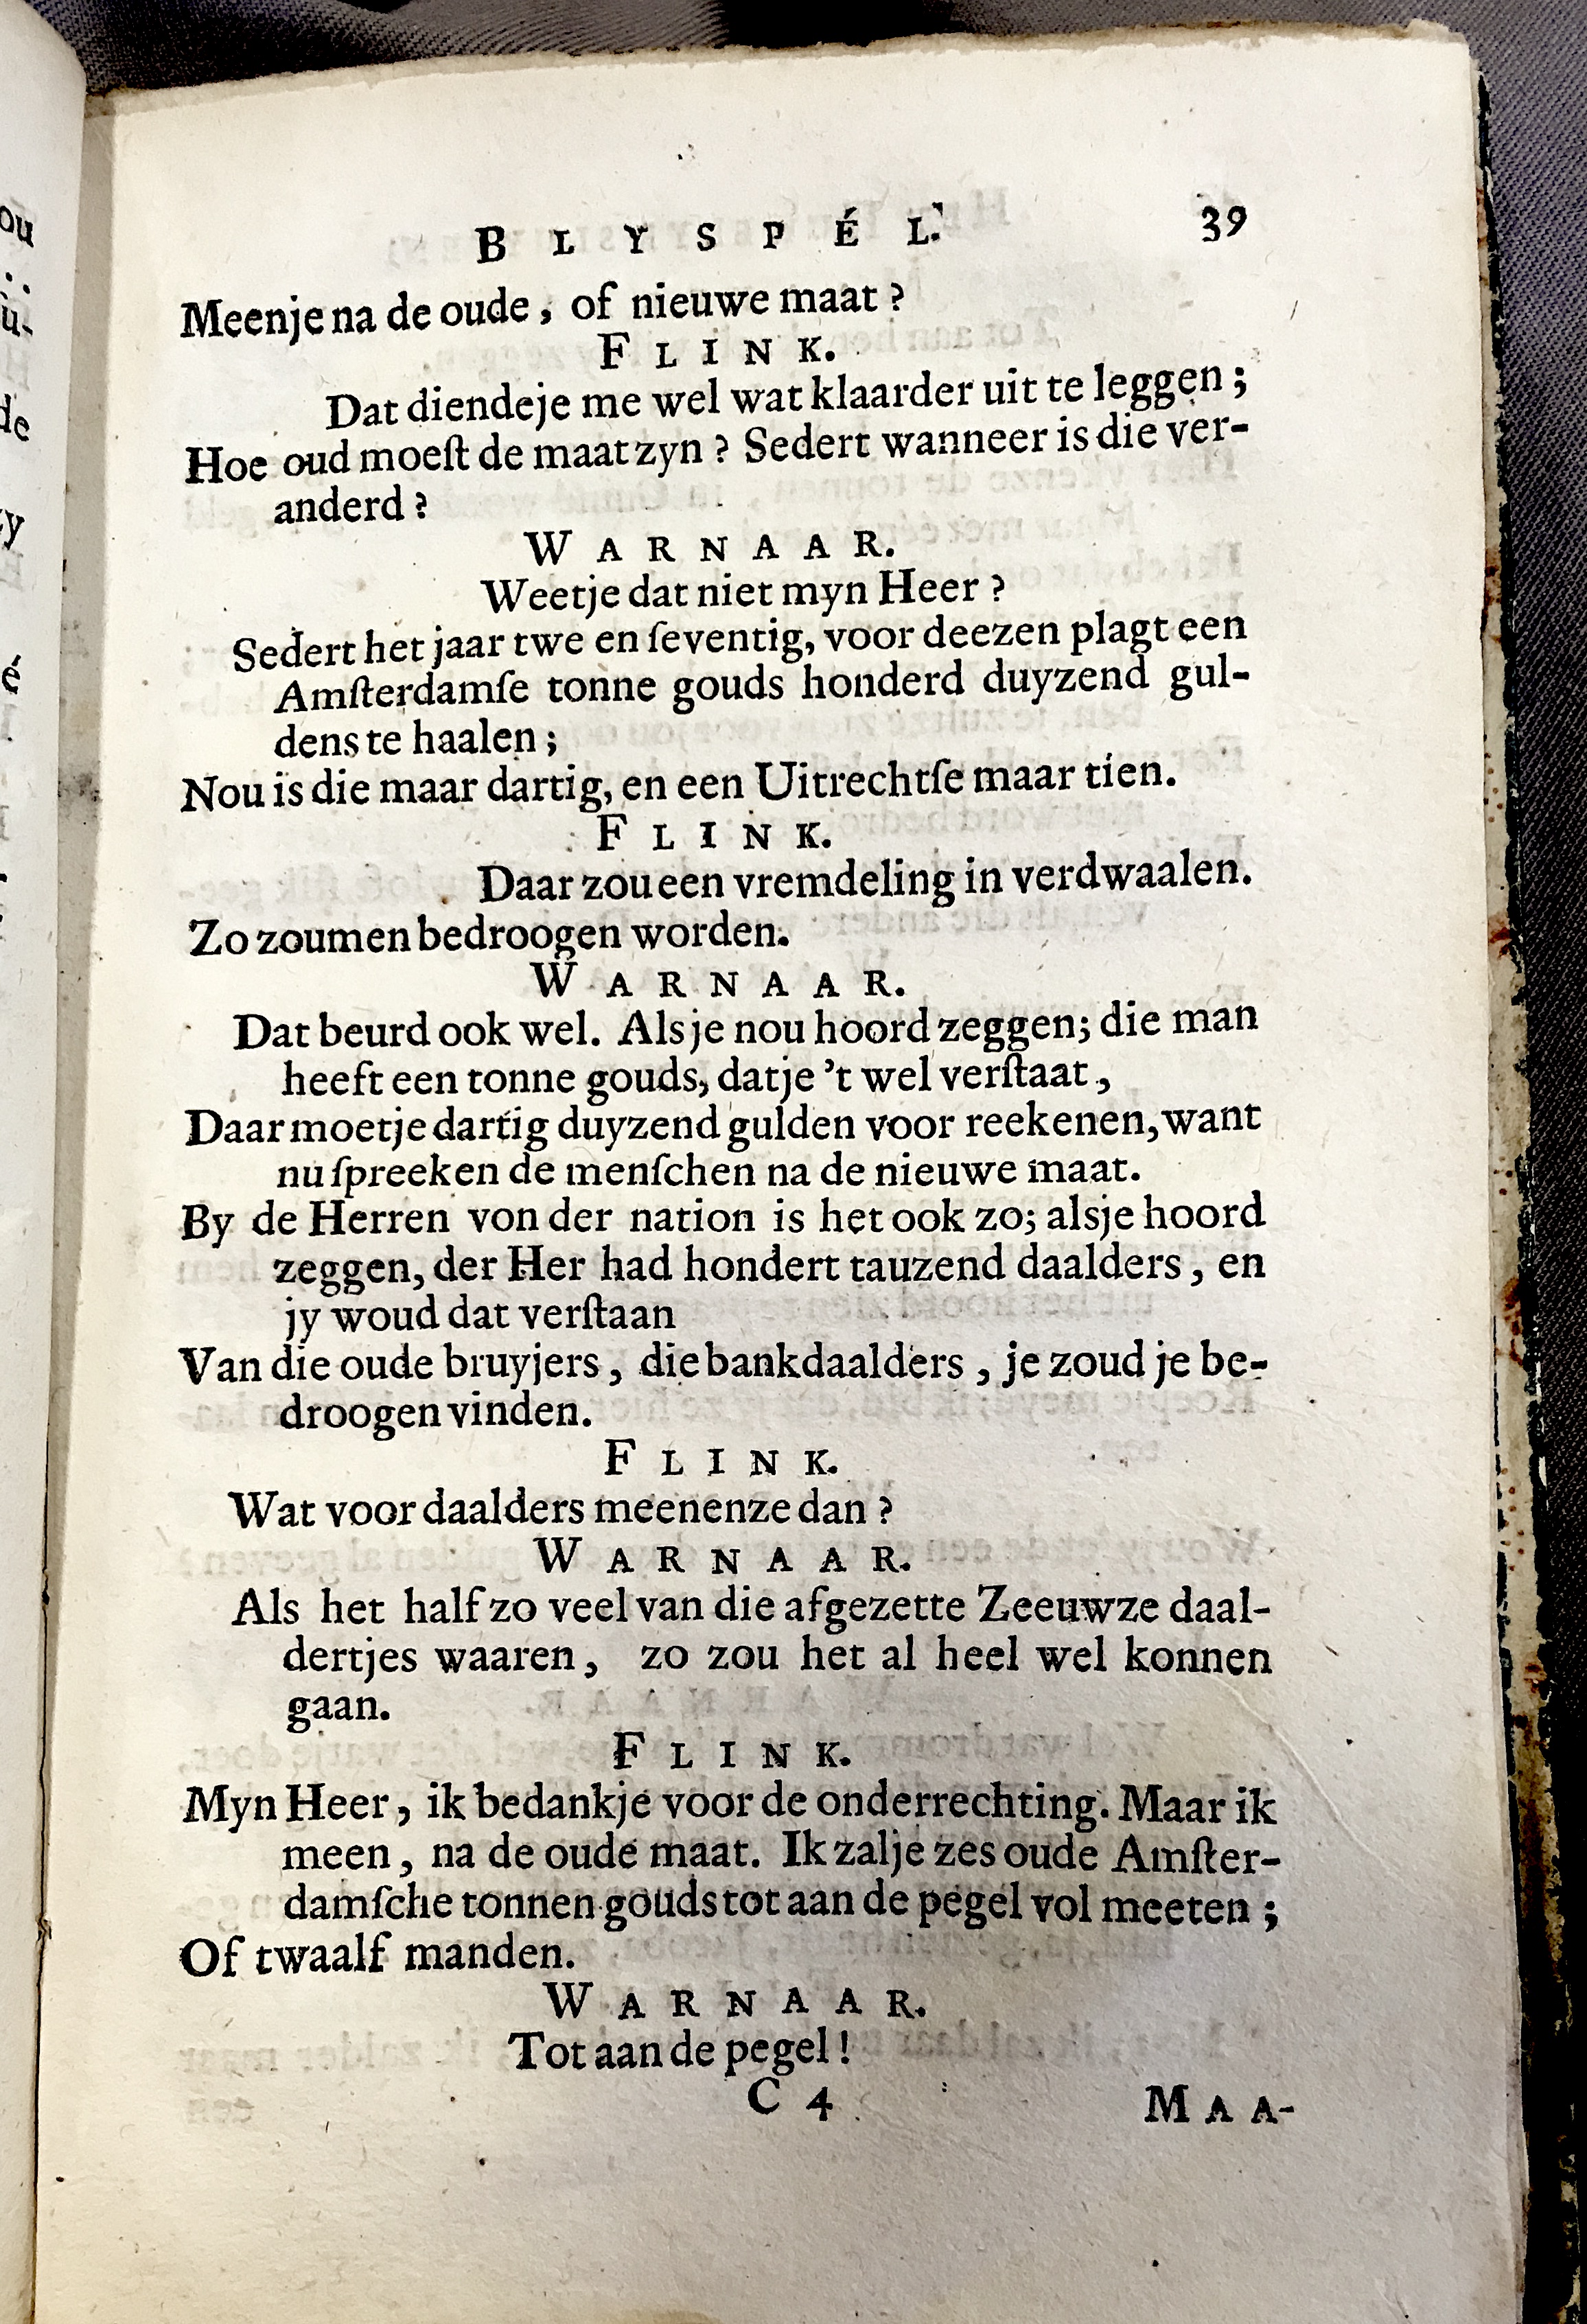 BLYSPÉL. 39
Meenje na de oude, of nieuwe maat?
FLINK.
Dat diendeje me wel wat klaarder uit te leggen;
Hoe oud moeſt de maat zyn? Sedert wanneer is die ver-
anderd?
WARNAAR.
Weetje dat niet myn Heer?
Sedert het jaar twe en ſeventig, voor deezen plagt een
Amſterdamſe tonne gouds honderd duyzend gul-
dens te haalen;
Nou is die maar dartig, en een Uitrechtſe maar tien.
FLINK.
Daar zou een vremdeling in verdwaalen.
Zo zoumen bedroogen worden.
WARNAAR.
Dat beurd ook wel. Alsje nou hoord zeggen; die man
heeft een tonne gouds, datje 't wel verſtaat,
Daar moetje dartig duyzend gulden voor reekenen, want
nu ſpreeken de menſchen na de nieuwe maat.
By de Herren von der nation is het ook zo; alsje hoord
zeggen, der Her had hondert tauzend daalders, en
jy woud dat verſtaan
Van die oude bruyjers, die bankdaalders, je zoud je be-
droogen vinden.
FLINK.
Wat voor daalders meenenze dan?
WARNAAR.
Als het half zo veel van die afgezette Zeeuwze daal-
dertjes waaren, zo zou het al heel wel konnen
gaan.
FLINK.
Myn Heer, ik bedankje voor de onderrechting. Maar ik
meen, na de oude maat. Ik zalje zes oude Amſter-
damſche tonnen gouds tot aan de pegel vol meeten;
Of twaalf manden.
WARNAAR.
Tot aan de pegel!
C 4 MAA-